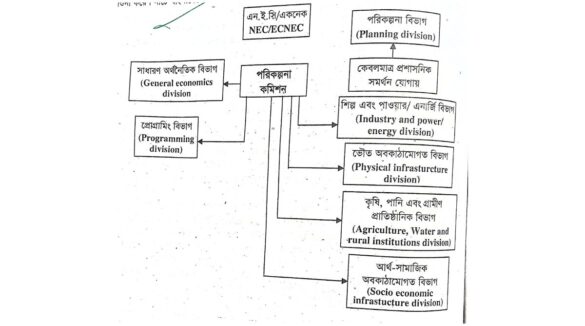 এন.ই.সি/একনেক
NEC/ECNEC
পরিকল্পনা বিভাগ
(Planning division)
সাধারণ অর্থনৈতিক বিভাগ
(General economics
division
পরিকল্পনা
কমিশন
কেবলমাত্র প্রশাসনিক
সমর্থন যোগায়
শিল্প এবং পাওয়ার/ এনার্জি বিভাগ
(Industry and power/
energy division)
প্রোগ্রামিং বিভাগ
(Programming
division)
ভৌত অবকাঠামোগত বিভাগ
(Physical infrasturcture
division)
কৃষি, পানি এবং গ্রামীণ
প্রাতিষ্ঠানিক বিভাগ
(Agriculture, Water and
rural institutions division)
আর্থ-সামাজিক
অবকাঠামোগত বিভাগ
(Socio economic
infrastucture division)